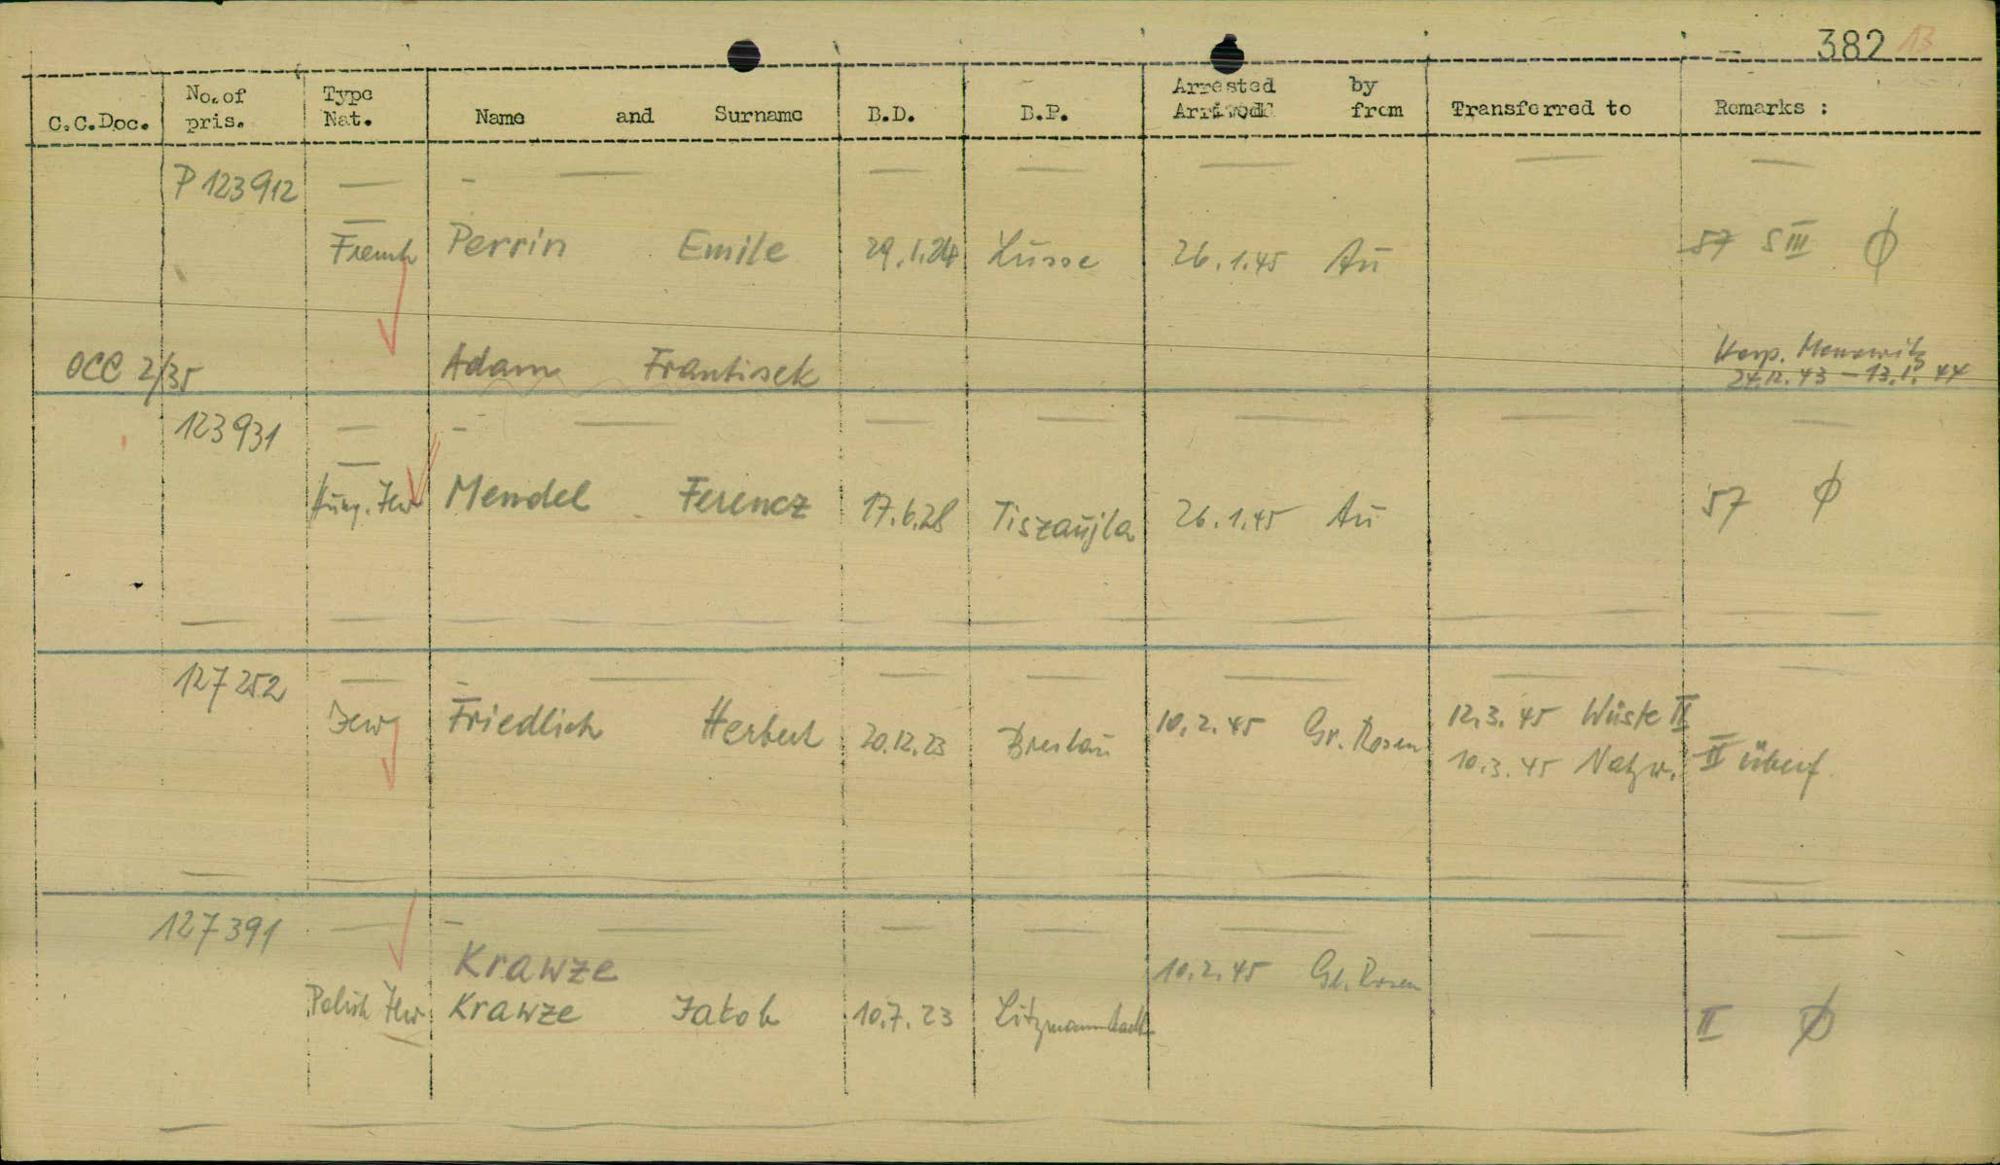 382 13
C.C.Doc. No. of pris. Type Nat. Name and Surname B.D. B.P. Arrested by Arrived from Transferred to Remarks :
P 123912 — - — — — — — —
French Perrin Emile 29.1.24 Lusse 26.1.45 Au 57 S III Ø
OCC 2/35 Adam Frantisek Hosp. Monowitz
24.12.43 – 13.1.44
123931 — - — — — — — —
Hung. Jew Mendel Ferencz 17.6.28 Tiszaujla 26.1.45 Au 57 Ø
127252 — - — — — — — —
Jew Friedlich Herbert 20.12.23 Breslau 10.2.45 Gr. Rosen 12.3.45 Wüste II
10.3.45 Natzw. II überf.
127391 — - — — — — — —
Krawze
Polish Jew Krawze Jakob 10.7.23 Litzmannstadt 10.2.45 Gr. Rosen II Ø